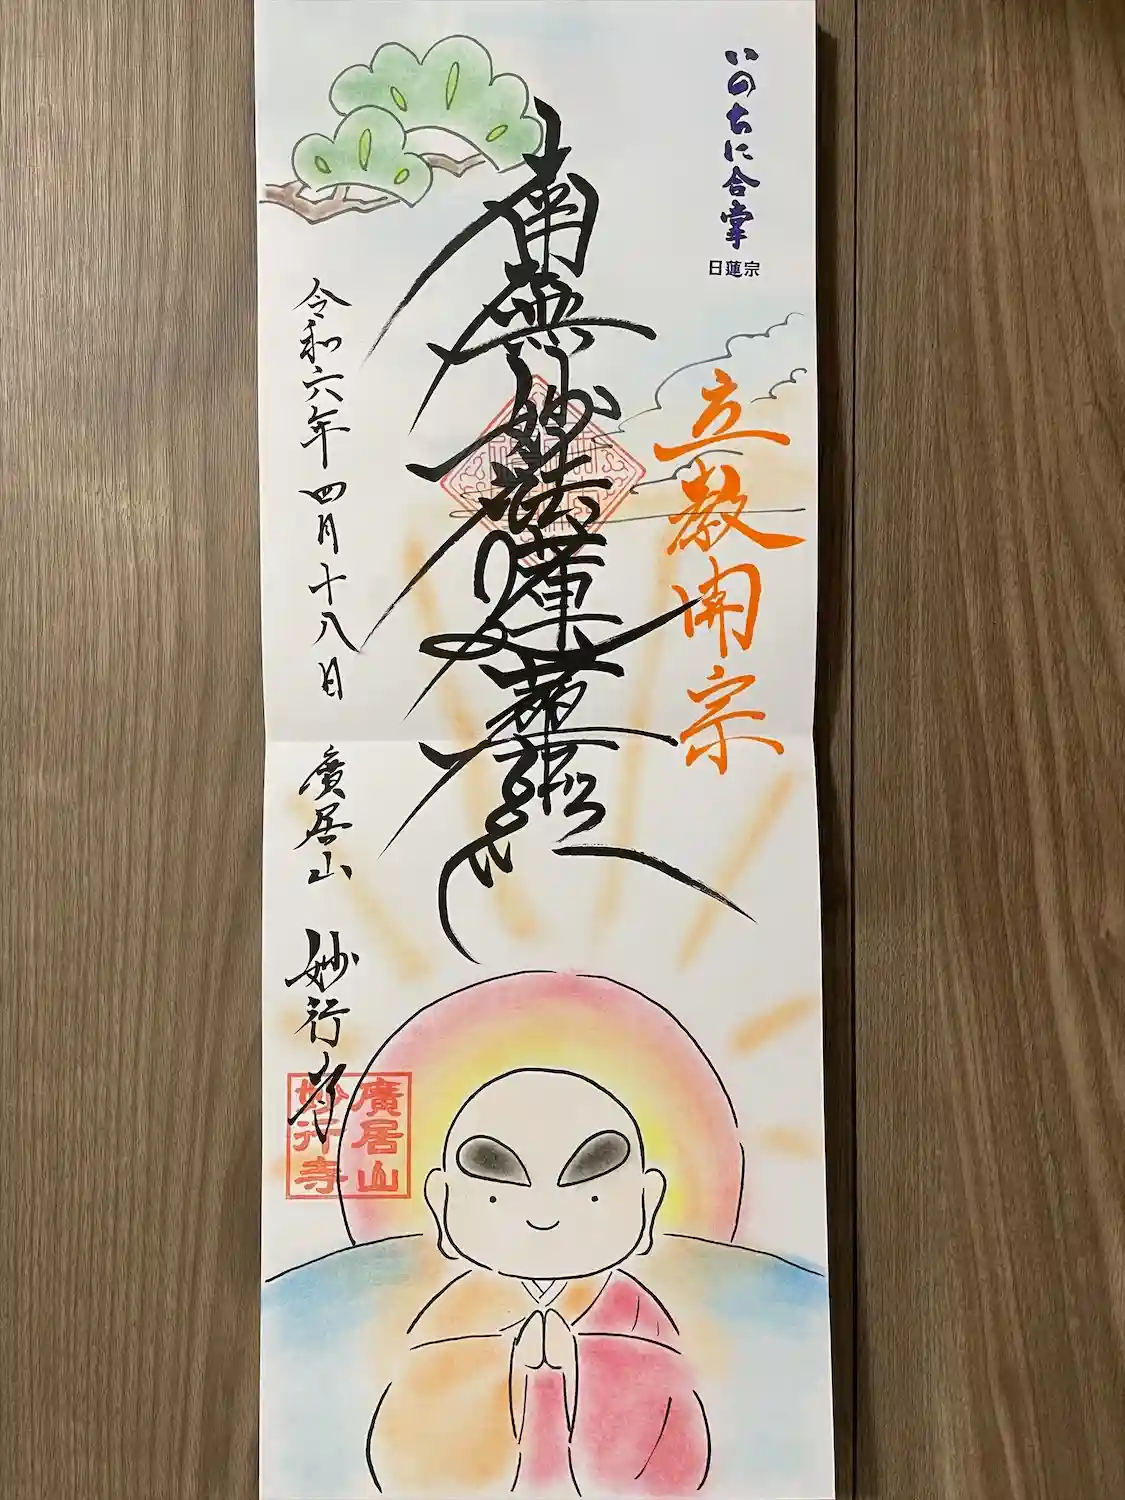 いのちに合掌
日蓮宗
立教開宗
南無妙法蓮華経
令和六年 四月十八日
廣居山 妙行寺
廣居山
妙行寺